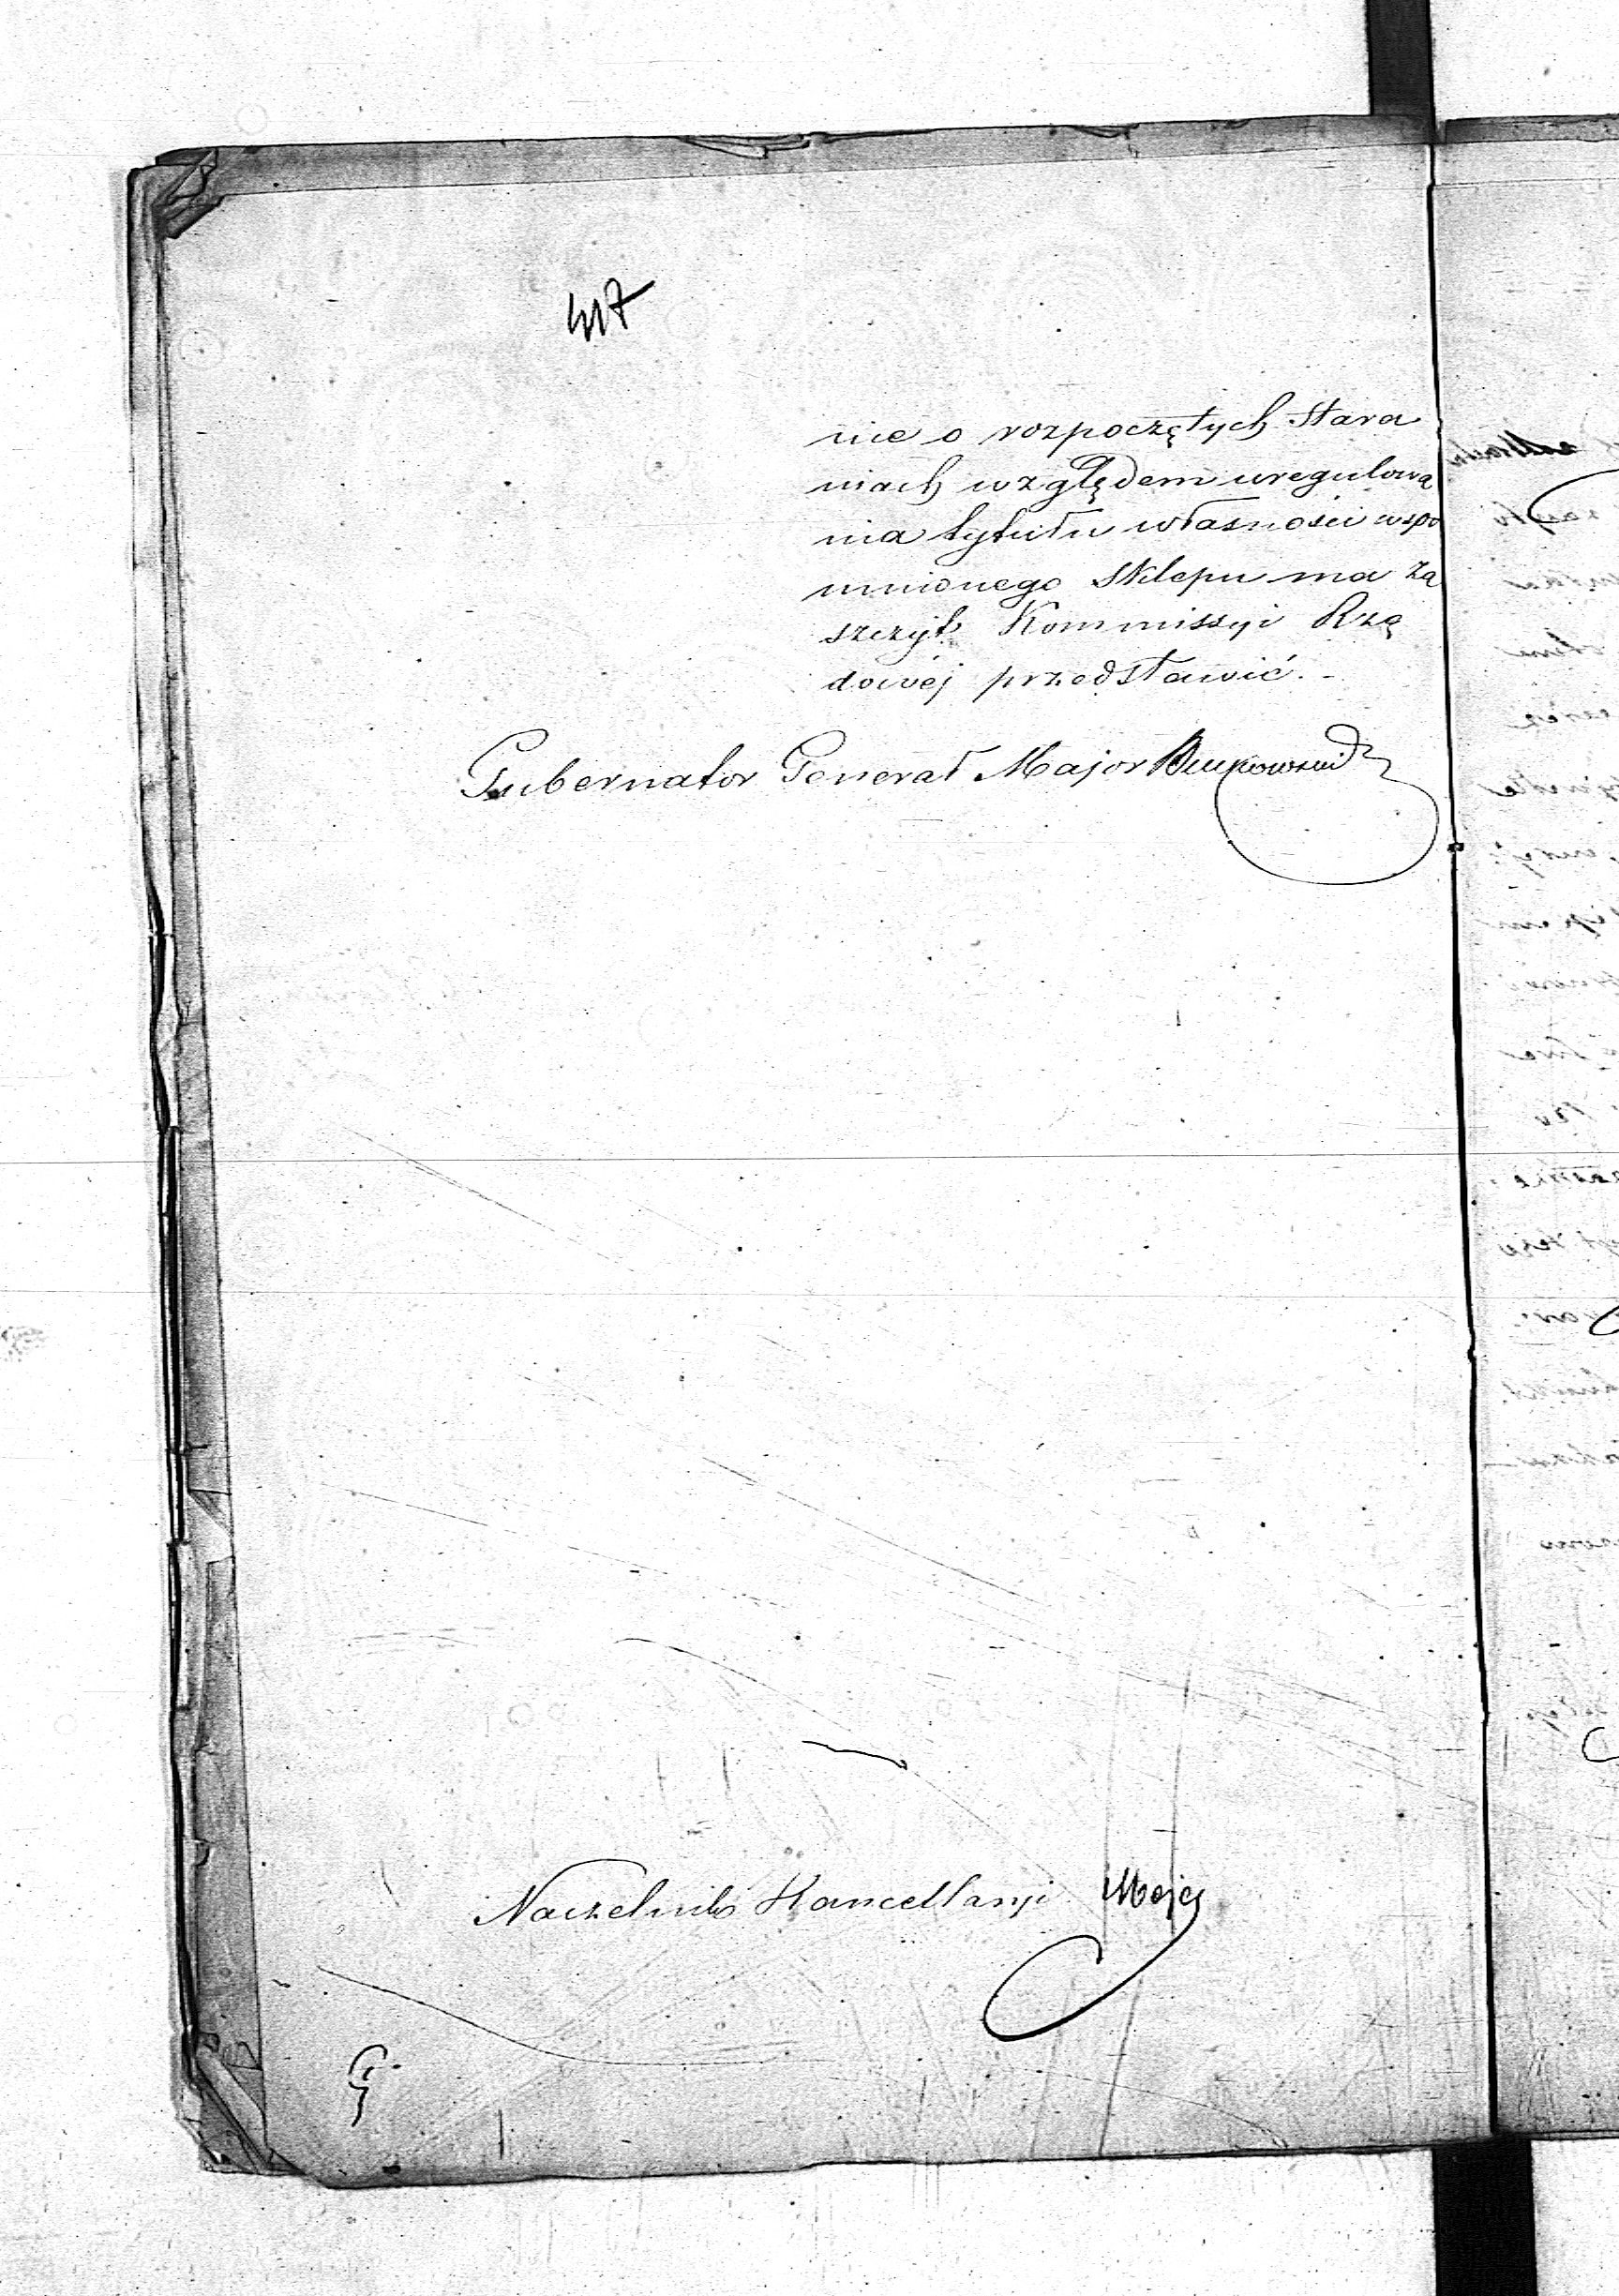 417
nie o rozpoczętych stara
niach względem uregulowa
nia tytułu własności wspo
mnionego sklepu ma za
szczyt Kommissyi Rzą
dowéj przedstawić.-
Gubernator Generał Major
Naczelnik Kancellaryi